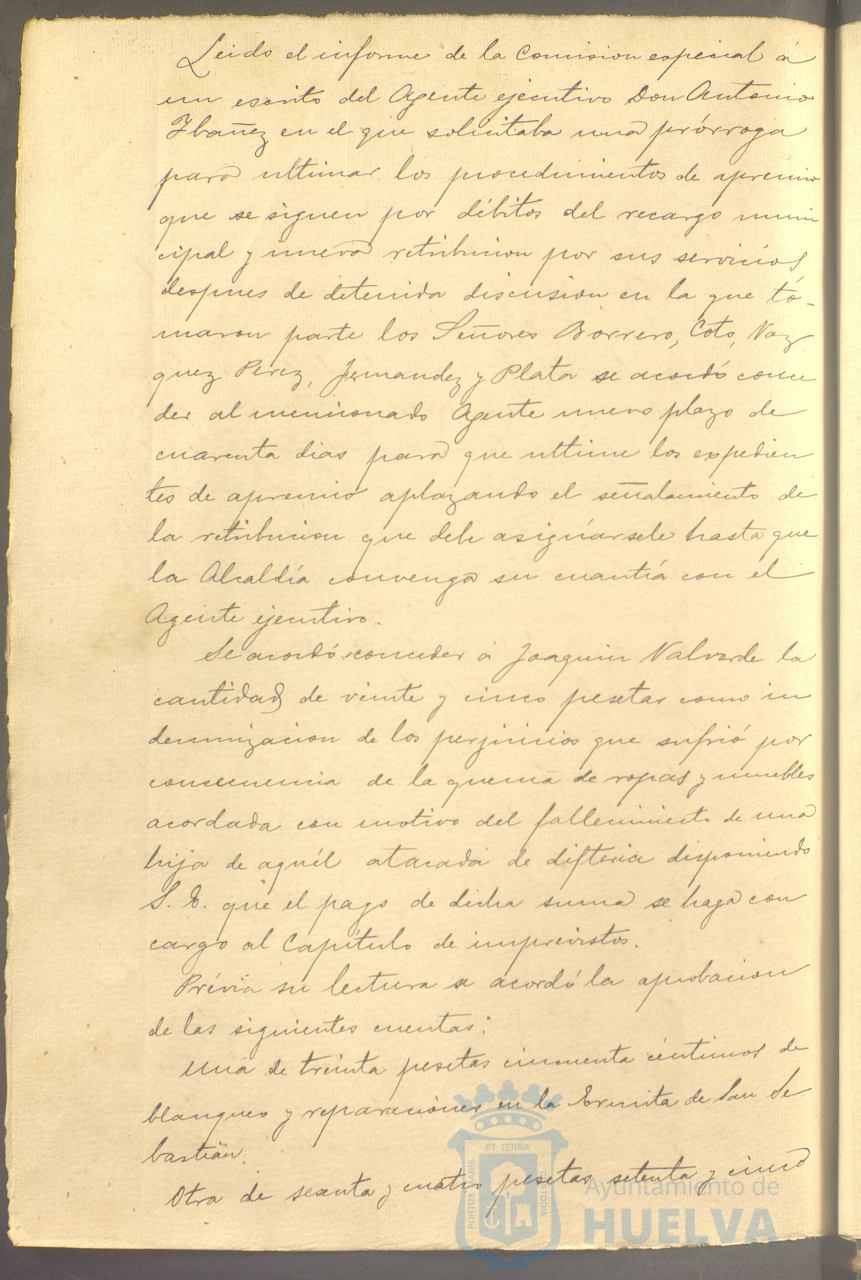 Leido el informe de la Comision especial á
un escrito del Agente ejecutivo Don Antonio
Ibañez en el que solicitaba una prórroga
para ultimar los procedimientos de apremio
que se siguen por débitos del recargo muni
cipal y nueva retribucion por sus servicios
despues de detenida discusion en la que to-
maron parte los Señores Borrero, Coto, Vaz
quez Perez, Jernandez y Plata se acordó conce
der al mencionado Agente nuevo plazo de
cuarenta dias para que ultime los expedien
tes de apremio aplazando el señalamiento de
la retribucion que debe asignársele hasta que
la Alcaldía convenga su cuantía con el
Agente ejecutivo.
Se acordó conceder á Joaquin Valverde la
cantidad de veinte y cinco pesetas como in
demnizacion de los perjuicios que sufrió por
consecuencia de la quema de ropas y muebles
acordada con motivo del fallecimiento de una
hija de aquél atacada de difteria disponiendo
S. E. que el pago de dicha suma se haga con
cargo al Capítulo de imprevistos.
Prévia su lectura se acordó la aprobacion
de las siguientes cuentas:
Una de treinta pesetas cincuenta céntimos de
blanqueo y reparaciones en la Ermita de San Se
bastián.
Otra de sesenta y cuatro pesetas setenta y cinco
ET TERRÆ
PORTUS MARIS
CUSTODIA
Ayuntamiento de
HUELVA